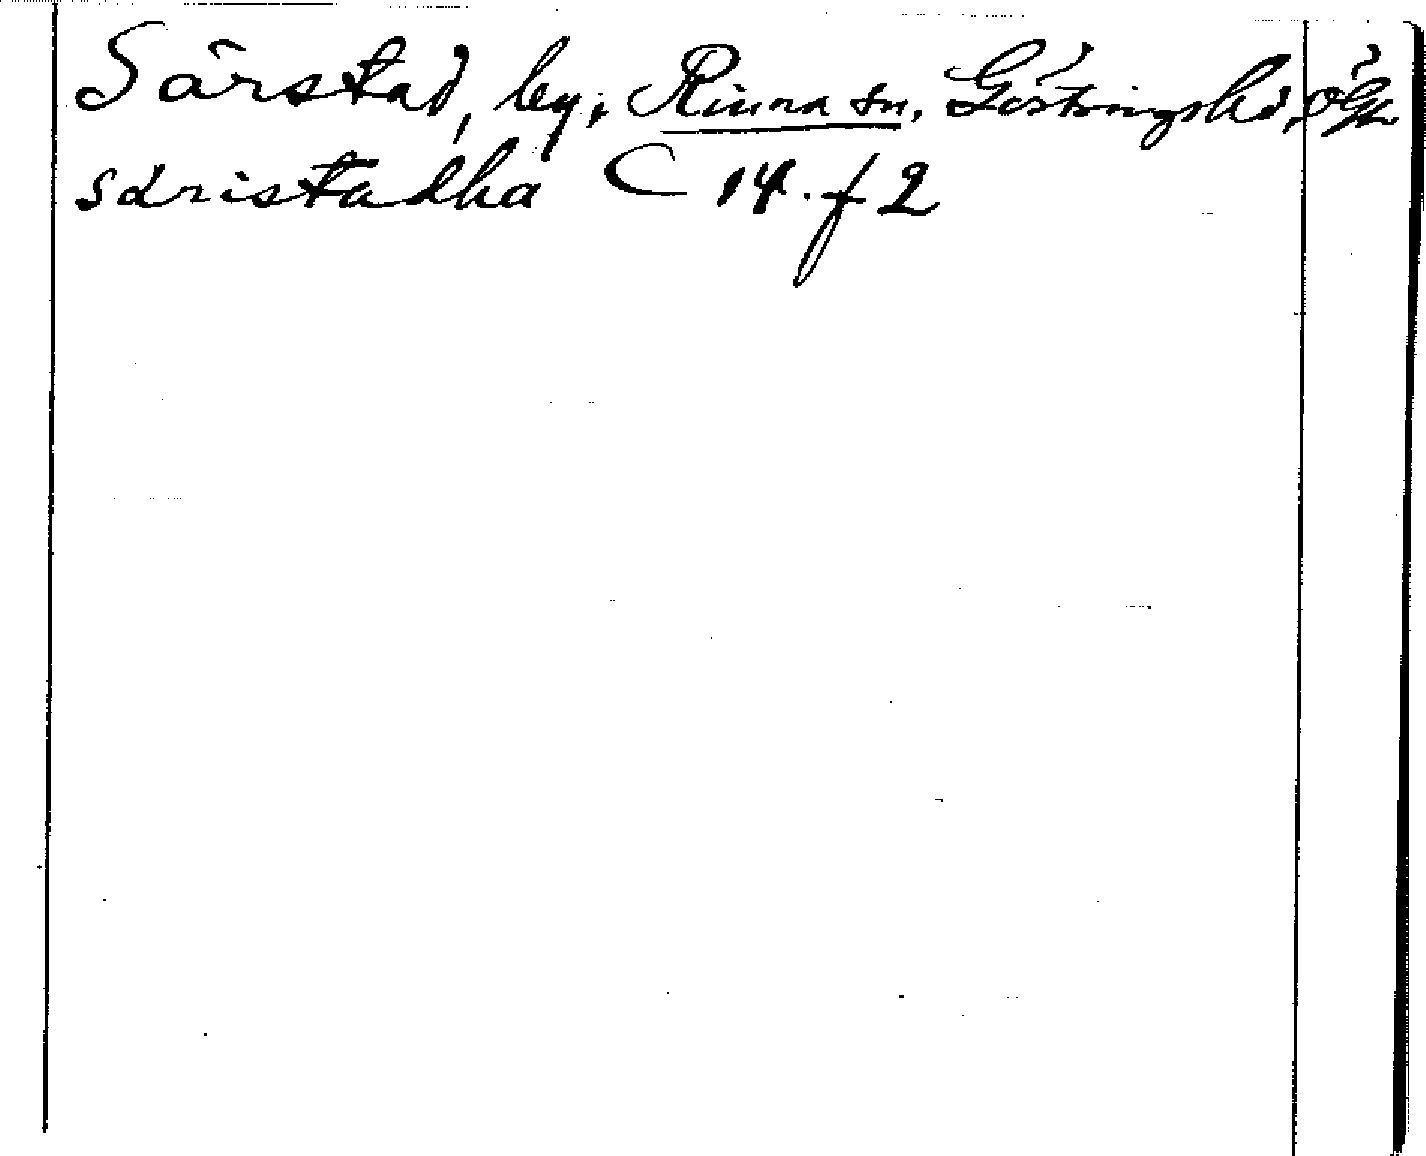 Särstad, by, Rinna sn, Göstrings hd, Ögl
særistadha C 14. f 2